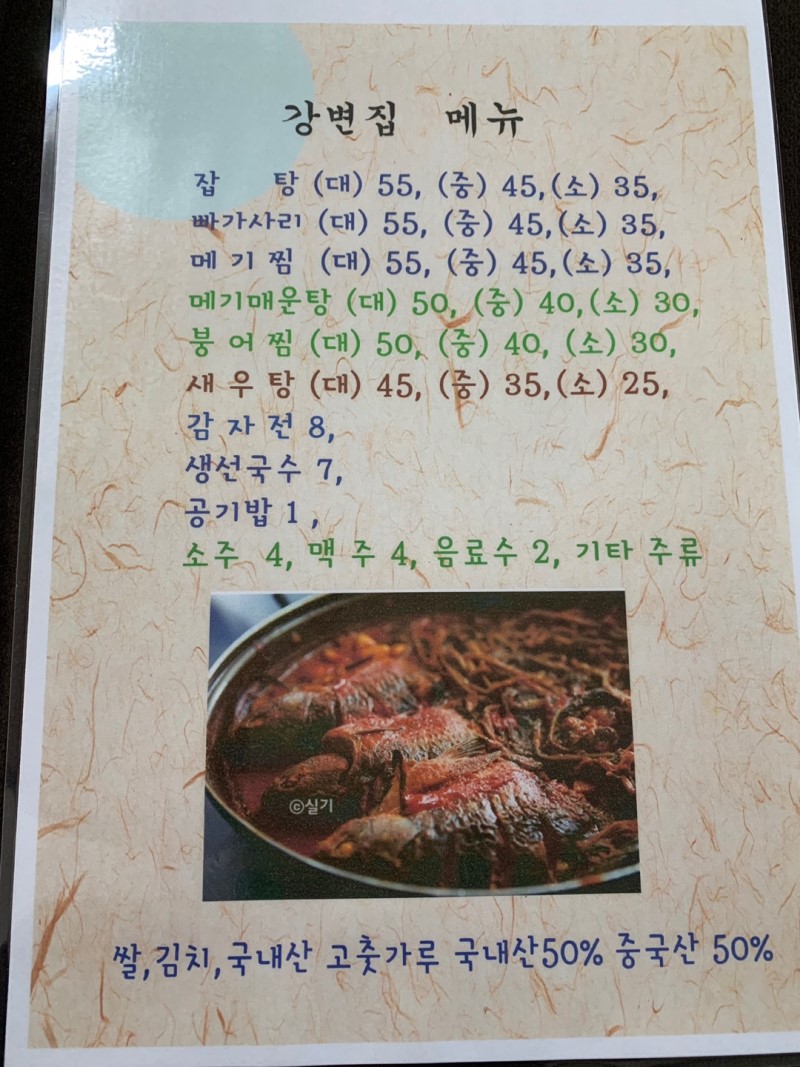 강변집 메뉴
잡 탕 (대) 55, (중) 45,(소) 35,
빠가사리 (대) 55, (중) 45,(소) 35,
메 기 찜 (대) 55, (중) 45,(소) 35,
메기매운탕 (대) 50, (중) 40,(소) 30,
붕 어 찜 (대) 50, (중) 40, (소) 30,
새 우 탕 (대) 45, (중) 35,(소) 25,
감 자 전 8,
생선국수 7,
공기밥 1 ,
소주 4, 맥 주 4, 음료수 2, 기타 주류
©실기
쌀,김치,국내산 고춧가루 국내산50% 중국산 50%